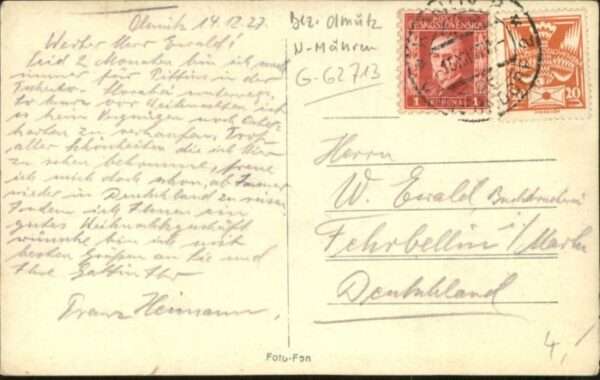 Olmütz 14.12.27.
Werter Herr Ewald!
Seit 2 Monaten bin ich
immer für Tiffins in der
Tschecho-Slovakei unterwegs.
so kurz vor Weihnachten ist
es kein Vergnügen noch Oster-
karten zu verkaufen. Trotz
aller Schönheiten die ich hier
zu sehen bekomme, freue
ich mich doch schon,
wieder in Deutschland zu
Indem ich Ihnen ein
gutes Weihnachtsgeschäft
wünsche bin ich mit
besten Grüßen an Sie und
Ihre Gattin Ihr
Franz Heimann.
Bez. Olmütz
N-Mähren
G-62713
ČESKOSLOVENSKÁ
1 KORUNA 1
20
Herrn
W. Ewald, Buchdruckerei
Fehrbellin i/Mark
Deutschland
4,-
Foto-Fon